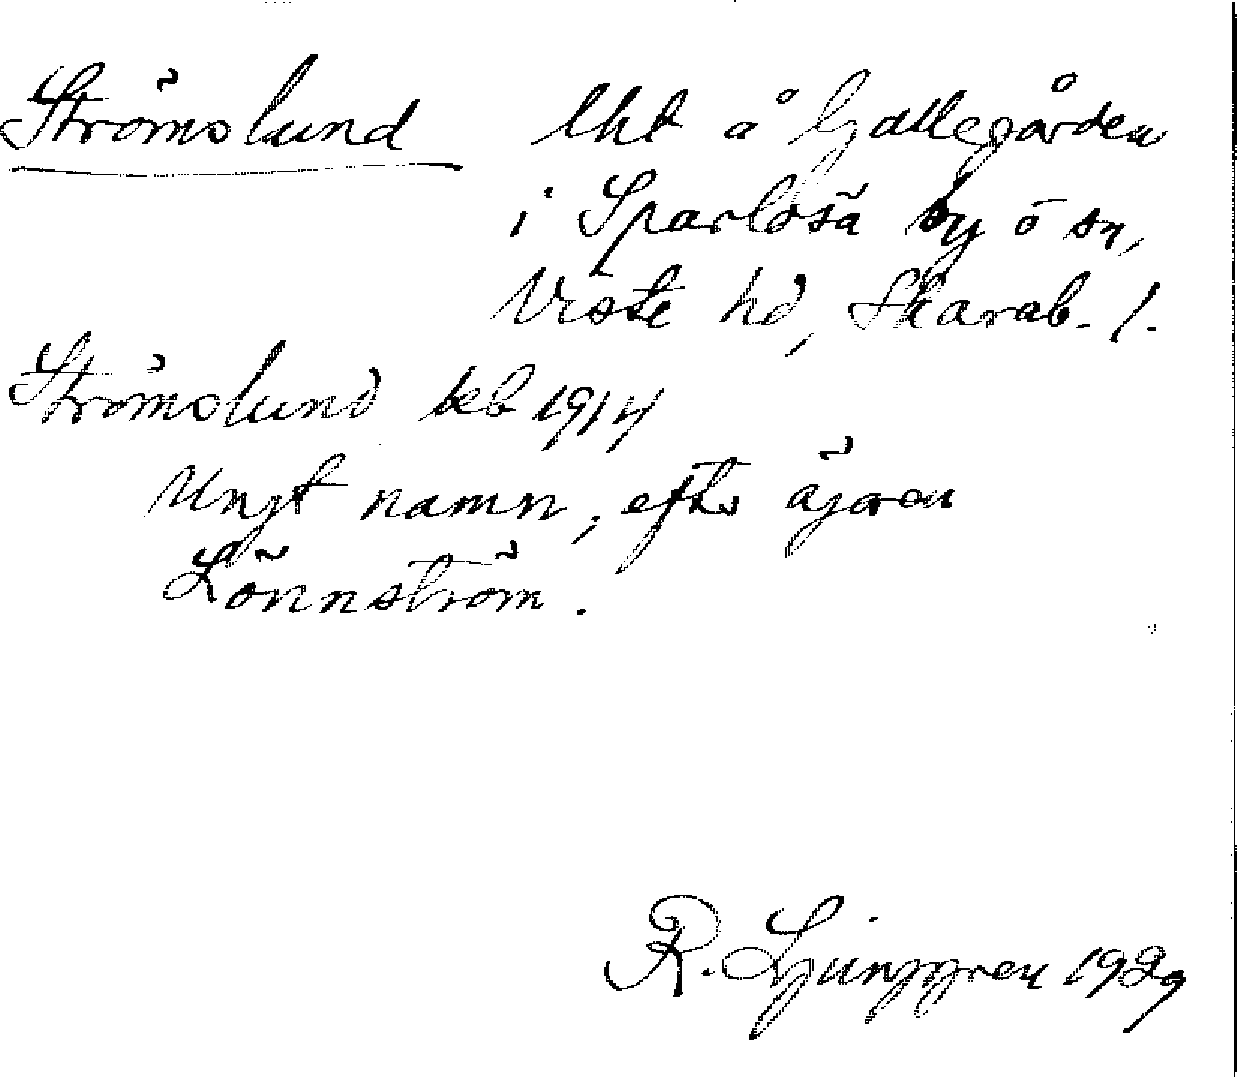 Strömslund lht å Hjallegården
i Sparlösa by o sn,
Viste hd, Skarab. l.
Strömslund keb 1914
Ungt namn, efter ägaren
Lönnström.
R. Ljunggren 1929